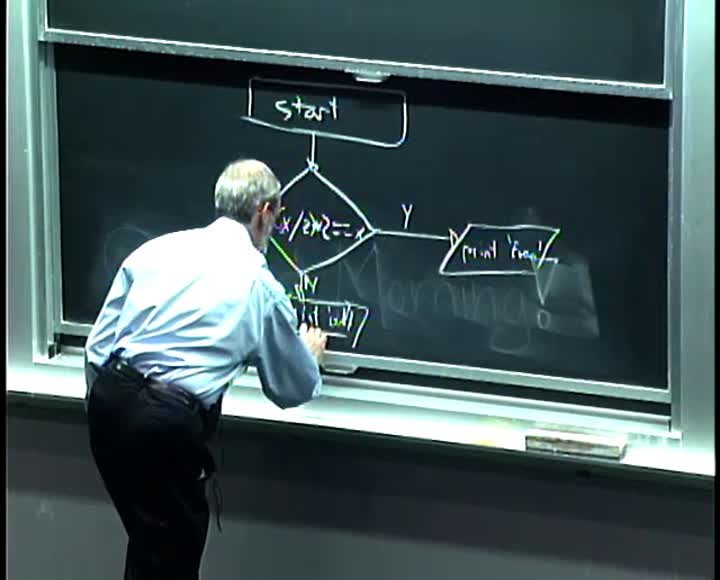 start
x/2)*2==x
Y
print 'Even'
N
Morning!